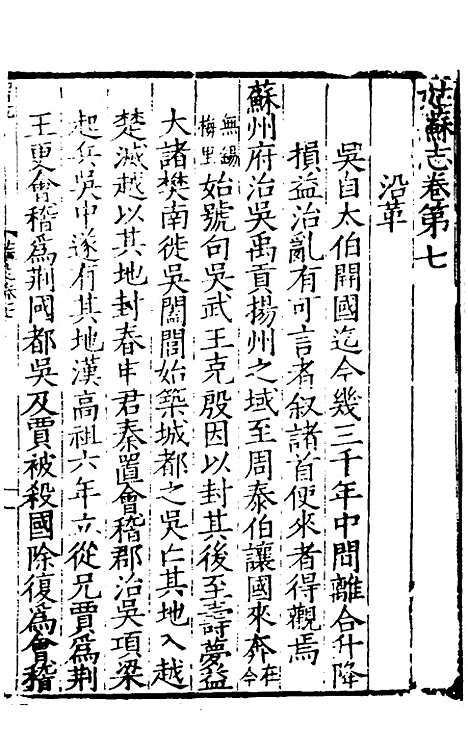 姑蘇志卷第七
沿革
吳自太伯開國迄今幾三千年中間離合升降
損益治亂有可言者叙諸首使來者得觀焉
蘇州府治吳禹貢揚州之域至周泰伯讓國來奔在今
無錫梅里始號句吳武王克殷因以封其後至壽夢益
大諸樊南徙吳闔閭始築城都之吳亡其地入越
楚滅越以其地封春申君秦置會稽郡治吳項梁
起兵吳中遂有其地漢高祖六年立從兄賈爲荆
王更會稽爲荆國都吳及賈被殺國除復爲會稽